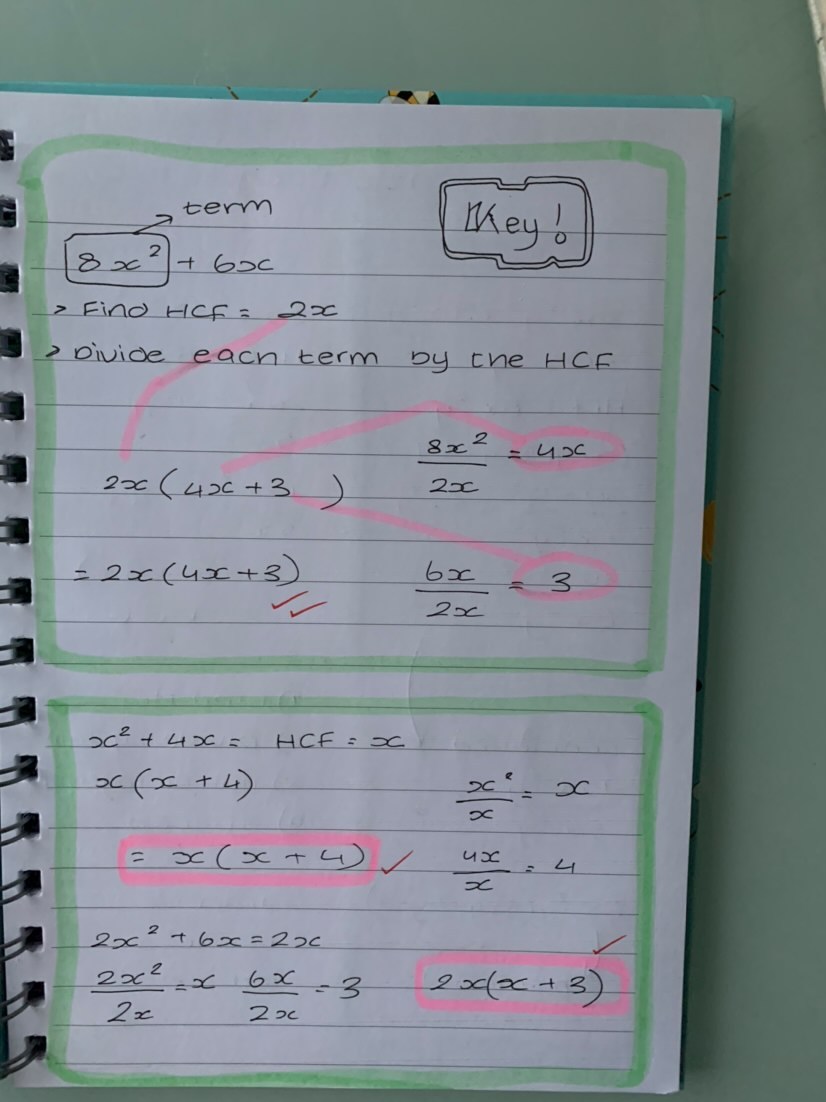 term
Key!
8x² + 6x
> Find HCF = 2x
> Divide each term by the HCF
8x²/2x = 4x
2x(4x + 3 )
= 2x(4x+3)
6x/2x = 3
x² + 4x = HCF = x
x(x + 4)
x²/x = x
= x(x + 4)
4x/x = 4
2x² + 6x = 2x
2x²/2x = x 6x/2x = 3 2x(x + 3)